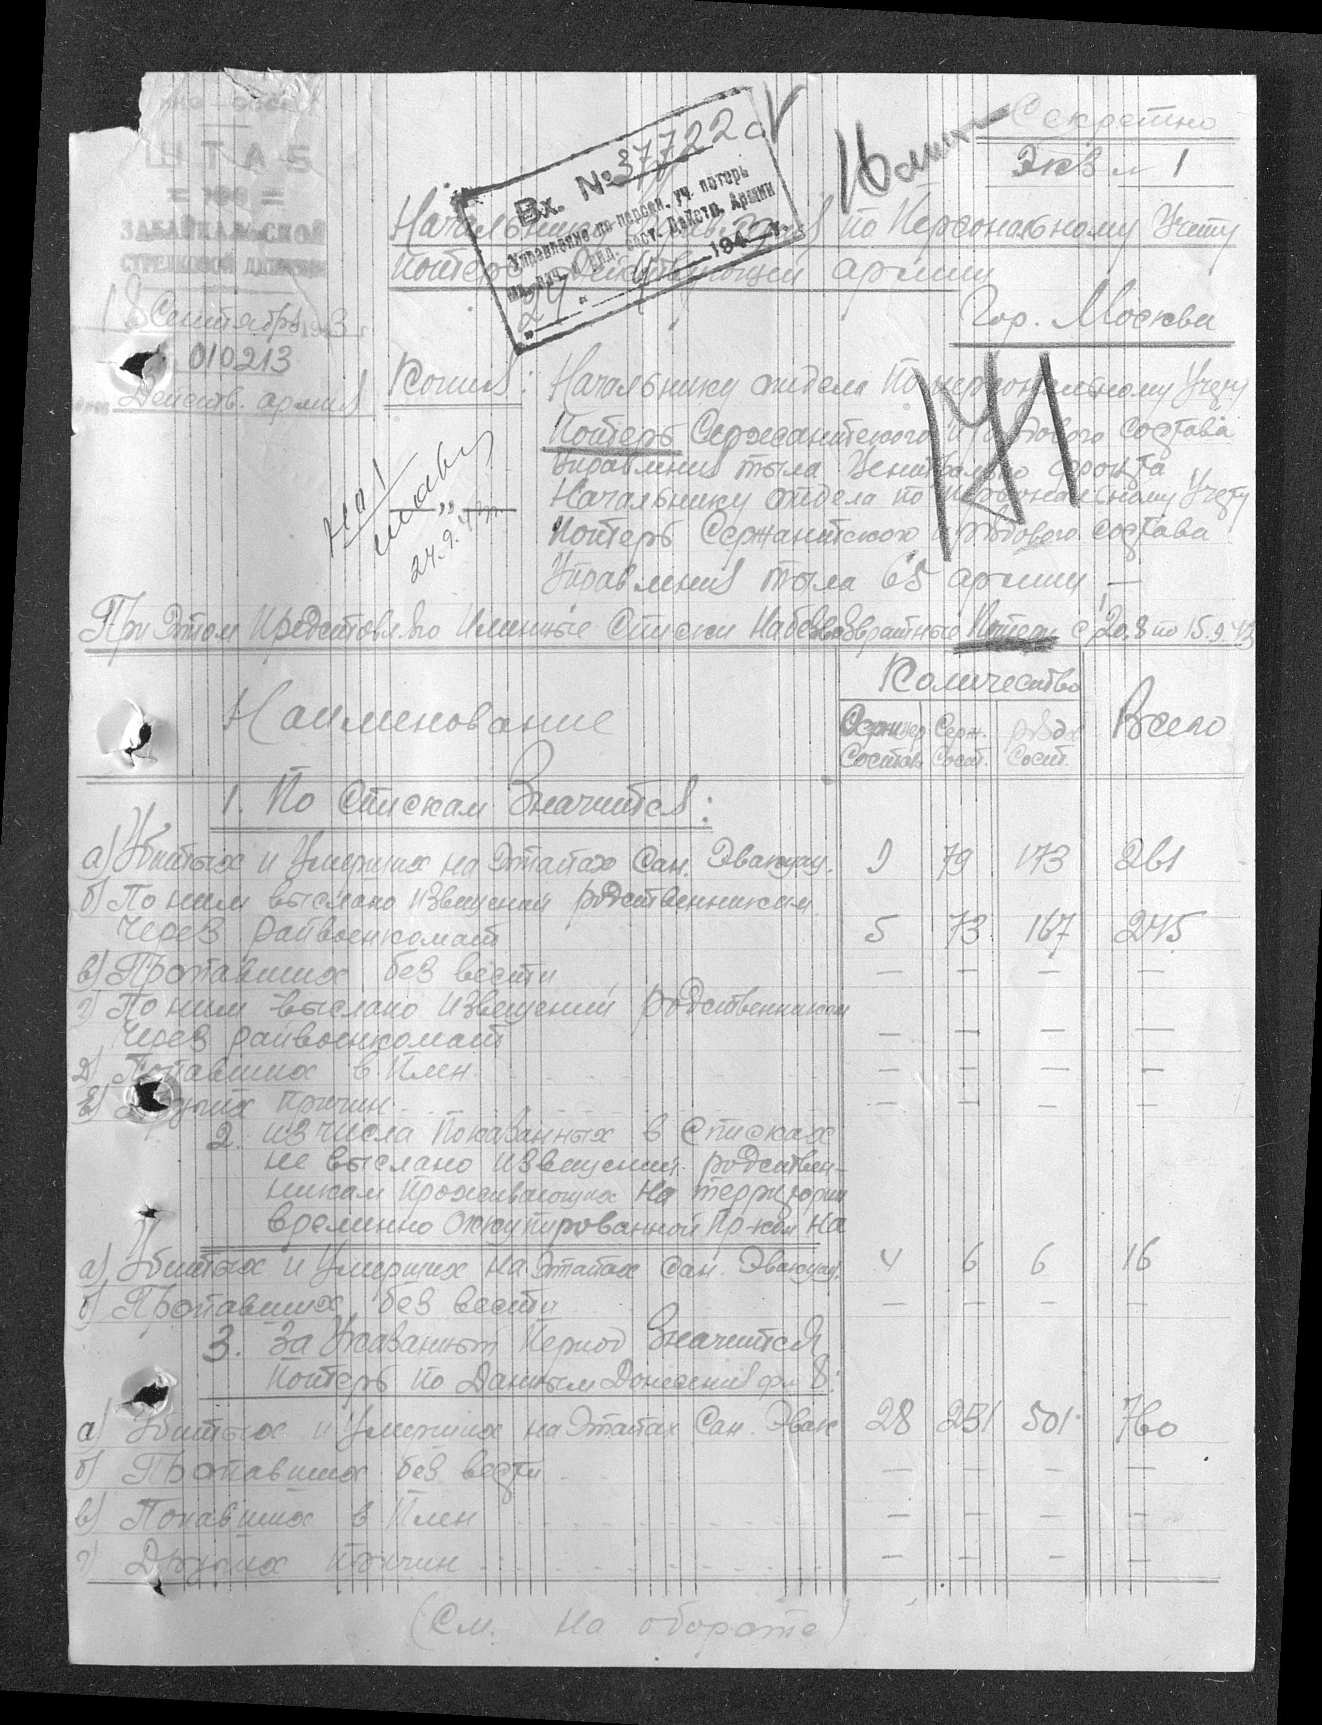 НКО СССР
ШТАБ
= 106 =
ЗАБАЙКАЛЬСКОЙ
СТРЕЛКОВОЙ ДИВИЗИИ
18 Сентября 1943 г
010213
Действ. армия
Вх. № 37722с
Управление по персон. уч. потерь
мл. нач. и ряд. сост. Действ. Армии
"29" 9 194 г.
Секретно
Экз № 1
Начальнику по Персональному Учету
Потерь Действующей армии
Гор. Москва
Копия: Начальнику отдела По персональному Учету
Потерь Сержантского и рядового состава
Управления тыла Центрально фронта
Начальнику отдела по персональному Учету
Потерь Сержантского и рядового состава
Управления тыла 65 армии. —
24.9.43
При Этом Представляю Именные Списки На безвозвратные Потери с 20.8 по 15.9.43
Наименование
Количество
Всего
Офицер Состав
Серж. Сост.
рядов Сост.
1. По Спискам Значится:
а) Убитых и Умерших на Этапах Сан. Эвакуац. 9 79 173 261
б) По ним выслано извещений родственникам
Через райвоенкомат 5 73 167 245
в) Пропавших без вести — — — —
г) По ним выслано извещений родственникам
Через райвоенкомат — — — —
Д) Попавших в Плен — — — —
Е) Других Причин — — — —
2. из числа Показанных в Списках
не выслано извещений родствен-
никам Проживающих На территории
временно оккупированной Пр-ком На
а) Убитых и Умерших На Этапах Сан. Эвакуац. 4 6 6 16
б) Пропавших без вести — — — —
3. За Указанный Период Значится
Потерь По Данным Донесения фм 8:
а) Убитых и Умерших на Этапах Сан. Эвак 28 231 501 760
б) Пропавших без вести — — — —
в) Попавших в Плен — — — —
г) Других Причин — — — —
(См. На обороте)